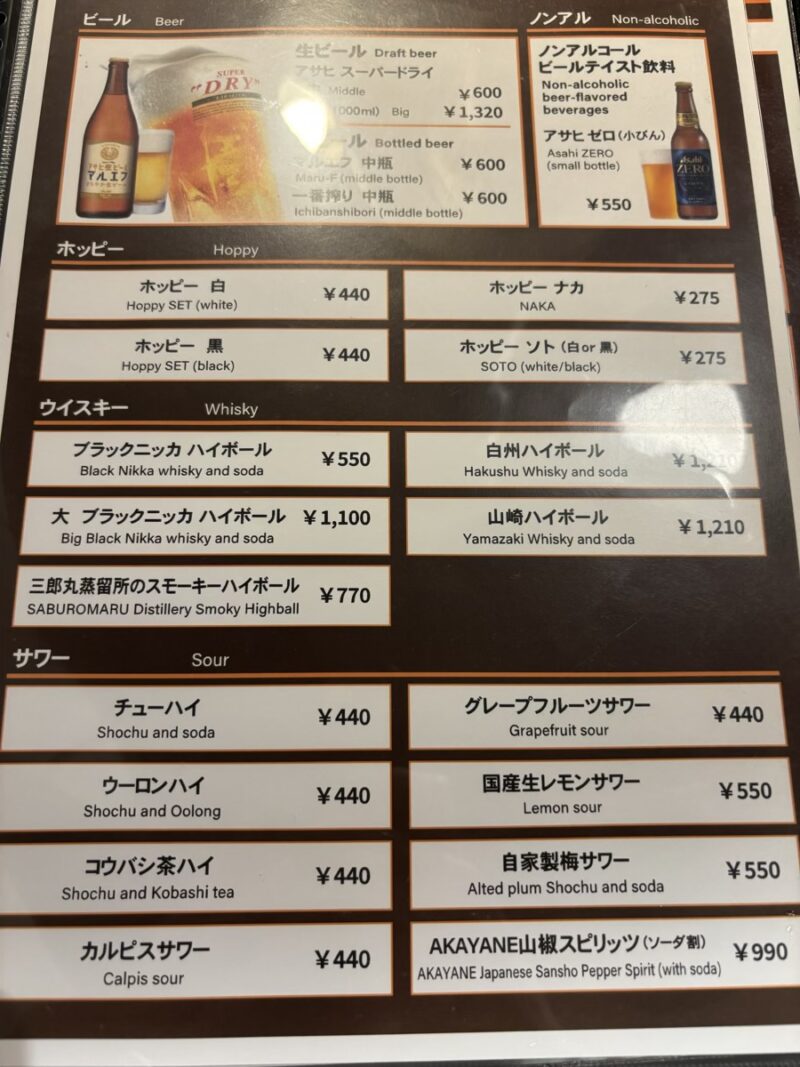 ビール Beer
生ビール Draft beer
アサヒ スーパードライ
Middle ￥600
000ml) Big ￥1,320
ール Bottled beer
マルエフ 中瓶 ￥600
Maru-F (middle bottle)
一番搾り 中瓶 ￥600
Ichibanshibori (middle bottle)
SUPER
"DRY"
マルエフ
ノンアル Non-alcoholic
ノンアルコール
ビールテイスト飲料
Non-alcoholic
beer-flavored
beverages
アサヒ ゼロ(小びん)
Asahi ZERO
(small bottle)
￥550
Asahi
ZERO
ホッピー Hoppy
ホッピー 白 ￥440
Hoppy SET (white)
ホッピー ナカ ￥275
NAKA
ホッピー 黒 ￥440
Hoppy SET (black)
ホッピー ソト (白or 黒) ￥275
SOTO (white/black)
ウイスキー Whisky
ブラックニッカ ハイボール ￥550
Black Nikka whisky and soda
白州ハイボール ￥1,210
Hakushu Whisky and soda
大 ブラックニッカ ハイボール ￥1,100
Big Black Nikka whisky and soda
山崎ハイボール ￥1,210
Yamazaki Whisky and soda
三郎丸蒸留所のスモーキーハイボール ￥770
SABUROMARU Distillery Smoky Highball
サワー Sour
チューハイ ￥440
Shochu and soda
グレープフルーツサワー ￥440
Grapefruit sour
ウーロンハイ ￥440
Shochu and Oolong
国産生レモンサワー ￥550
Lemon sour
コウバシ茶ハイ ￥440
Shochu and Kobashi tea
自家製梅サワー ￥550
Alted plum Shochu and soda
カルピスサワー ￥440
Calpis sour
AKAYANE山椒スピリッツ(ソーダ割) ￥990
AKAYANE Japanese Sansho Pepper Spirit (with soda)